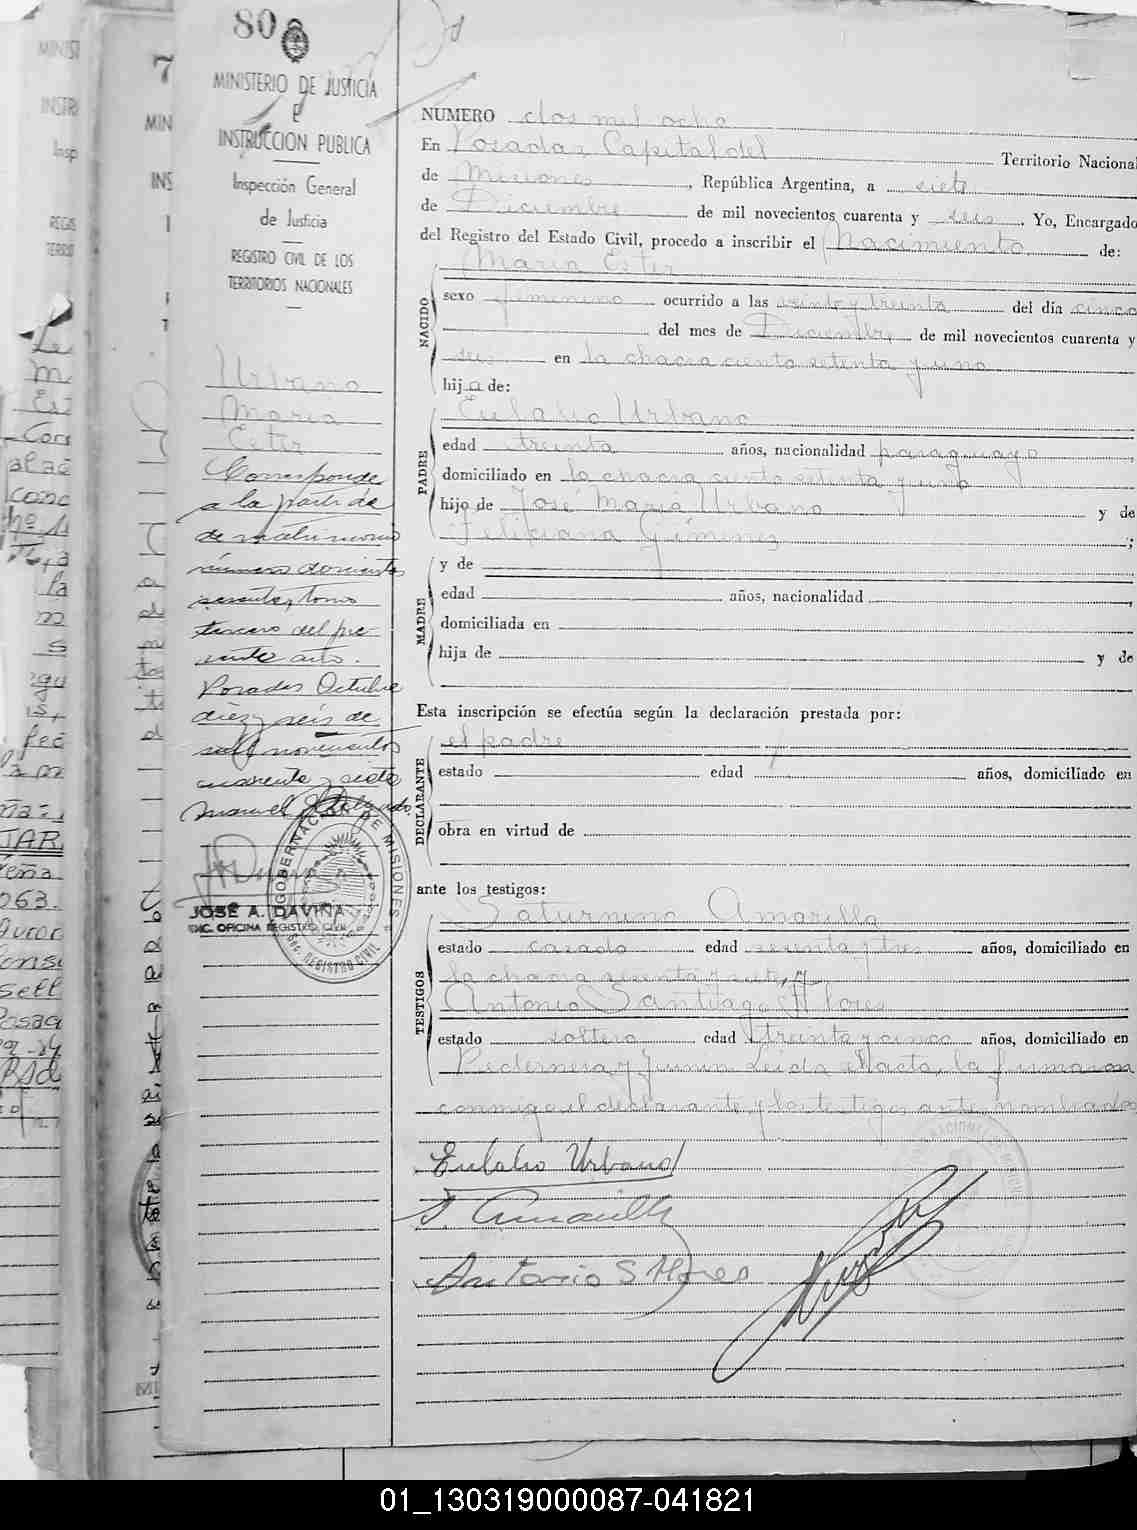 80
MINISTERIO DE JUSTICIA
E
INSTRUCCION PUBLICA
Inspección General
de Justicia
REGISTRO CIVIL DE LOS
TERRITORIOS NACIONALES
Urbano
María
Ester
Corresponde
a la partida
de matrimonio
número doscientos
sesenta, tomo
tercero del pre-
sente año.
Posadas Octubre
diez y seis de
mil novecientos
cuarenta y siete
Manuel
GOBERNACION DE MISIONES
REGISTRO CIVIL
JOSÉ A. DAVIÑA
ENC. OFICINA REGISTRO CIVIL
NUMERO dos mil ocho
En Posadas, Capital del Territorio Nacional
de Misiones, República Argentina, a siete
de Diciembre de mil novecientos cuarenta y seis. Yo, Encargado
del Registro del Estado Civil, procedo a inscribir el Nacimiento de:
NACIDO
María Ester
sexo femenino ocurrido a las veinte y treinta del día cinco
del mes de Diciembre de mil novecientos cuarenta y
seis en la chacra ciento setenta y uno
hija de:
PADRE
Eulalio Urbano
edad treinta años, nacionalidad paraguayo
domiciliado en la chacra ciento setenta y uno
hijo de José María Urbano y de
Feliciana Giménez ;
MADRE
y de
edad años, nacionalidad
domiciliada en
hija de y de
Esta inscripción se efectúa según la declaración prestada por:
DECLARANTE
el padre
estado edad años, domiciliado en
obra en virtud de
ante los testigos:
TESTIGOS
Saturnino Amarilla
estado casado edad sesenta y tres años, domiciliado en
la chacra sesenta y siete, y
Antonio Santiago Flores
estado soltero edad treinta y cinco años, domiciliado en
Pedernera y Junín. Leída el acta, la firmaron
conmigo el declarante y los testigos ante nombrados
Eulalio Urbano
S. Amarilla
Antonio S Flores
01_130319000087-041821